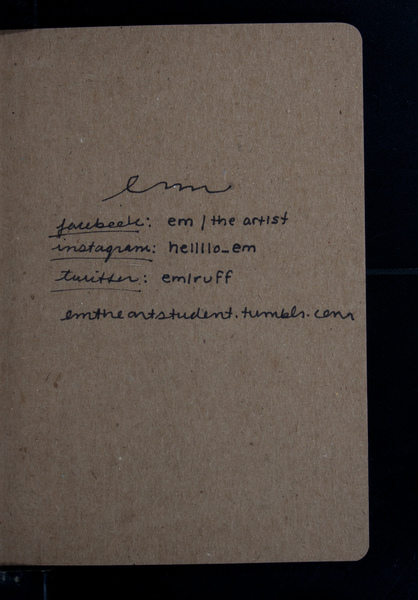 em
facebook: em / the artist
instagram: hellllo_em
twitter: em1ruff
emtheartstudent.tumblr.com